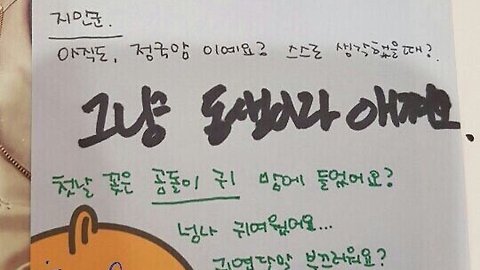 지민군.
아직도, 정국맘 이예요? 스스로 생각했을때?
그냥 동생이라 애껴요.
첫날 꽂은 곰돌이 귀 맘에 들었어요?
넝나 귀여웠어요...
귀엽단말 부끄러워요?